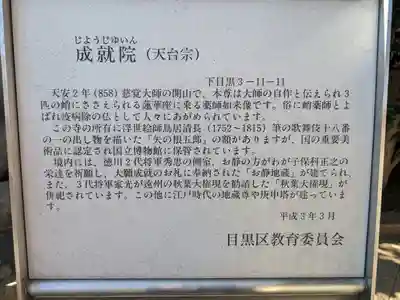 じょうじゅいん
成就院(天台宗)
下目黒3-11-11
天安2年(858)慈覚大師の開山で、本尊は大師の自作と伝えられ3
匹の蛸にささえられる蓮華座に乗る薬師如来像です。俗に蛸薬師とよ
ばれ疫病除の仏として人々にあがめられています。
この寺の所有に浮世絵師鳥居清長(1752~1815)筆の歌舞伎十八番
の一の出し物を描いた「矢の根五郎」の額がありますが、国の重要美
術品に認定され国立博物館に保管されています。
境内には、徳川2代将軍秀忠の側室、お静の方がわが子保科正之の
栄達を祈願し、大願成就のお礼に奉納された「お静地蔵」が建てられ、
また、3代将軍家光が遠州の秋葉大権現を勧請した「秋葉大権現」が
併祀されています。この他に江戸時代の地蔵尊や庚申塔が建っていま
す。
平成3年3月
目黒区教育委員会